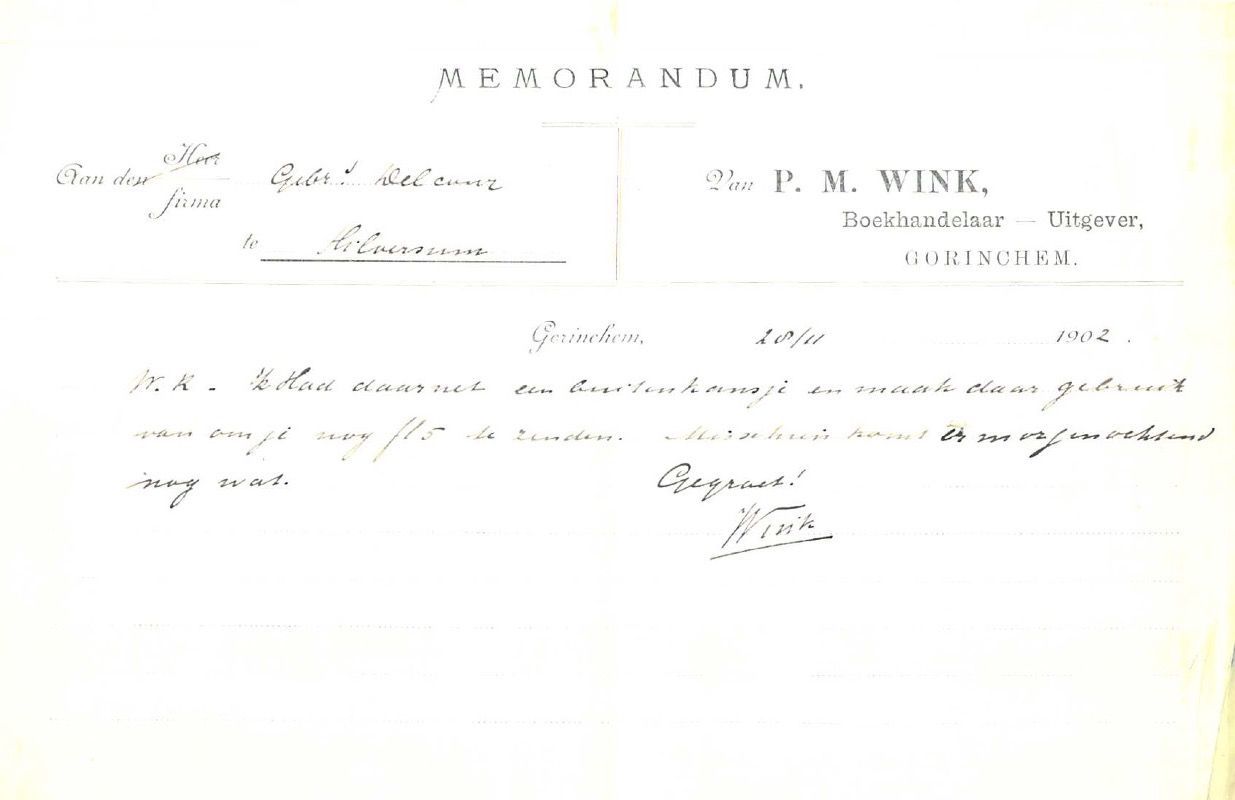 MEMORANDUM.
Aan den Heer
firma Gebr.s Delcour
te Hilversum
Van P. M. WINK,
Boekhandelaar — Uitgever,
GORINCHEM.
Gorinchem, 28/11 1902.
W. K. - 'k Had daarnet een buitenkansje en maak daar gebruik
van om je nog f15 te zenden. Misschien komt er morgenochtend
nog wat. Gegroet!
Wink